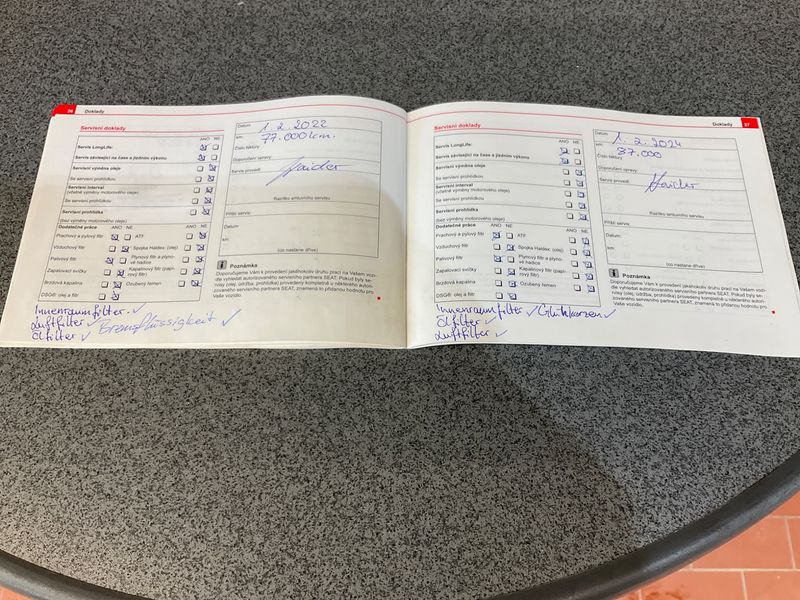 26 Doklady
Servisní doklady
ANO NE
Servis LongLife:
Servis závisející na čase a jízdním výkonu
Servisní výměna oleje
Se servisní prohlídkou
Servisní interval
(včetně výměny motorového oleje)
Se servisní prohlídkou
Servisní prohlídka
(bez výměny motorového oleje)
Dodatečné práce
ANO NE ANO NE
Prachový a pylový filtr ATF
Vzduchový filtr Spojka Haldex: (olej)
Palivový filtr Plynový filtr a plynové hadice
Zapalovací svíčky Kapalinový filtr (papírový filtr)
Brzdová kapalina Ozubený řemen
DSG®: olej a filtr
Innenraumfilter ✓
Luftfilter ✓ Bremsflüssigkeit ✓
Ölfilter ✓
Datum 1.2.2022
km: 77.000 km.
Číslo faktury
Doporučení opravy:
Servis provedl: Haider
Razítko smluvního servisu
Příští servis:
Datum:
km:
(co nastane dříve)
Poznámka
Doporučujeme Vám k provedení jakéhokoliv druhu prací na Vašem vozidle vyhledat autorizovaného servisního partnera SEAT. Pokud by servisy (olej, údržba, prohlídka) provedeny kompletně u některého autorizovaného servisního partnera SEAT, znamená to přidanou hodnotu pro Vaše vozidlo.
Doklady 27
Servisní doklady
ANO NE
Servis LongLife:
Servis závisející na čase a jízdním výkonu
Servisní výměna oleje
Se servisní prohlídkou
Servisní interval
(včetně výměny motorového oleje)
Se servisní prohlídkou
Servisní prohlídka
(bez výměny motorového oleje)
Dodatečné práce
ANO NE ANO NE
Prachový a pylový filtr ATF
Vzduchový filtr Spojka Haldex: (olej)
Palivový filtr Plynový filtr a plynové hadice
Zapalovací svíčky Kapalinový filtr (papírový filtr)
Brzdová kapalina Ozubený řemen
DSG®: olej a filtr
Innenraumfilter ✓ Glühkerzen ✓
Ölfilter ✓
Luftfilter ✓
Datum: 1.2.2024
km: 87.000
Číslo faktury
Doporučení opravy:
Servis provedl: Haider
Razítko smluvního servisu
Příští servis:
Datum:
km:
(co nastane dříve)
Poznámka
Doporučujeme Vám k provedení jakéhokoliv druhu prací na Vašem vozidle vyhledat autorizovaného servisního partnera SEAT. Pokud by servisy (olej, údržba, prohlídka) provedeny kompletně u některého autorizovaného servisního partnera SEAT, znamená to přidanou hodnotu pro Vaše vozidlo.